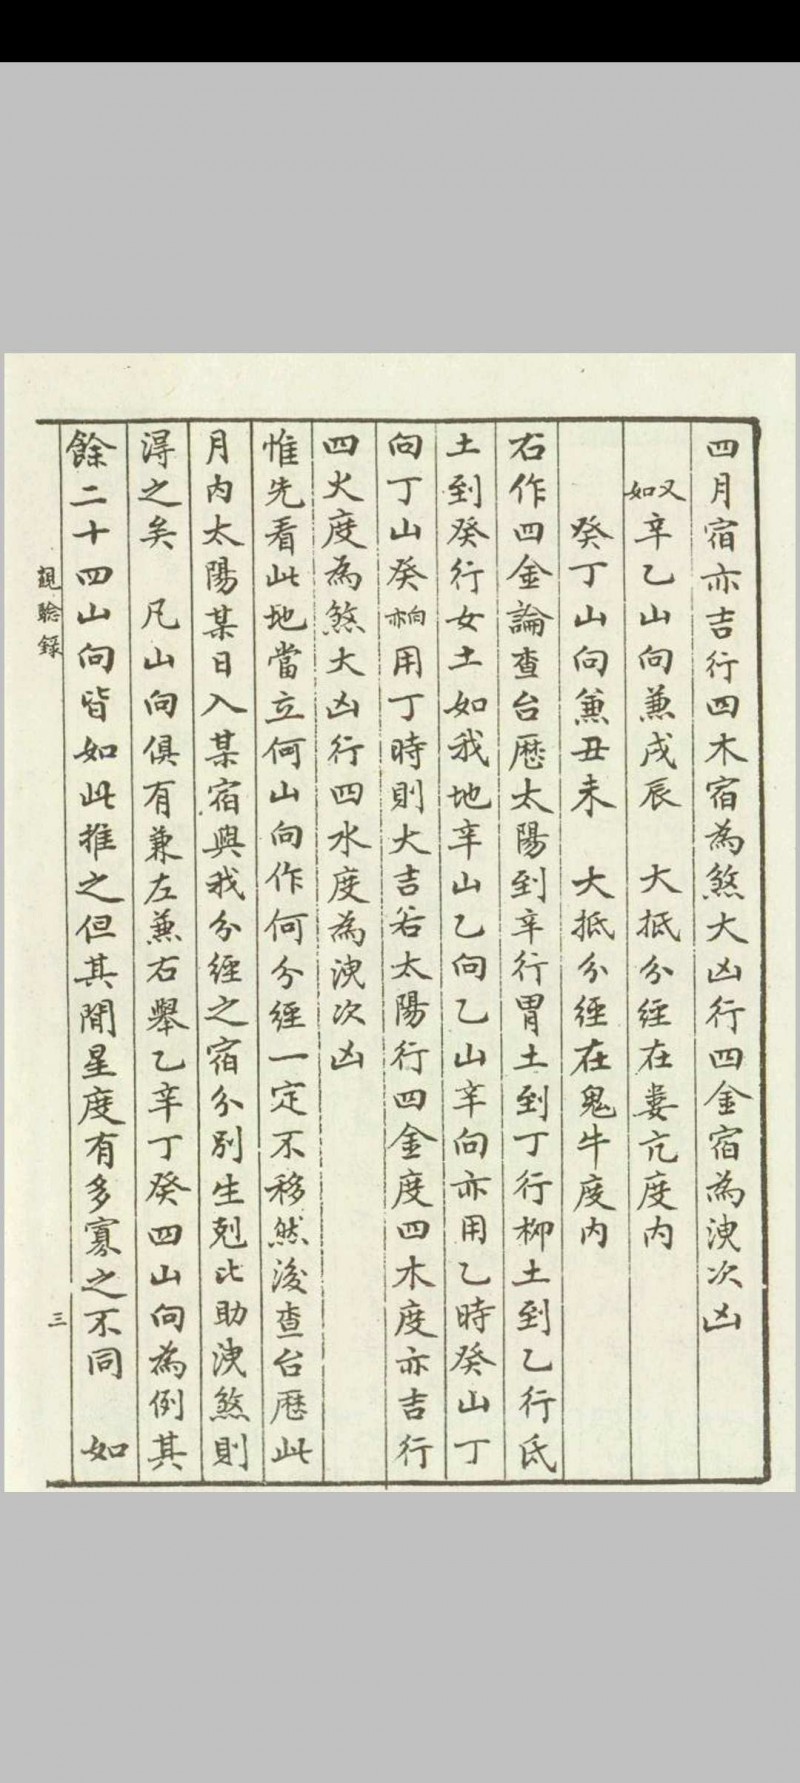 四月宿亦吉行四木宿為煞大凶行四金宿為洩次凶
又如辛乙山向兼戌辰　大抵分經在婁亢度內
癸丁山向兼丑未　大抵分經在鬼牛度內
右作四金論查台歷太陽到辛行胃土到丁行柳土到乙行氐
土到癸行女土如我地辛山乙向乙山辛向亦用乙時癸山丁
向丁山癸向亦用丁時則大吉若太陽行四金度四木度亦吉行
四火度為煞大凶行四水度為洩次凶
惟先看此地當立何山向作何分經一定不移然後查台歷此
月內太陽某日入某宿與我分經之宿分別生剋比助洩煞則
淂之矣　凡山向俱有兼左兼右舉乙辛丁癸四山向為例其
餘二十四山向皆如此推之但其間星度有多寡之不同　如
觀聡録
三